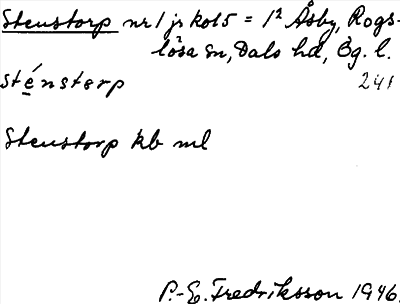 Stenstorp nr 1 js kol 5 = 1² Åsby, Rogs-
lösa sn, Dals hd, Ög. l.
sténstorp 241
Stenstorp kb ml
P.-E. Fredriksson 1946.